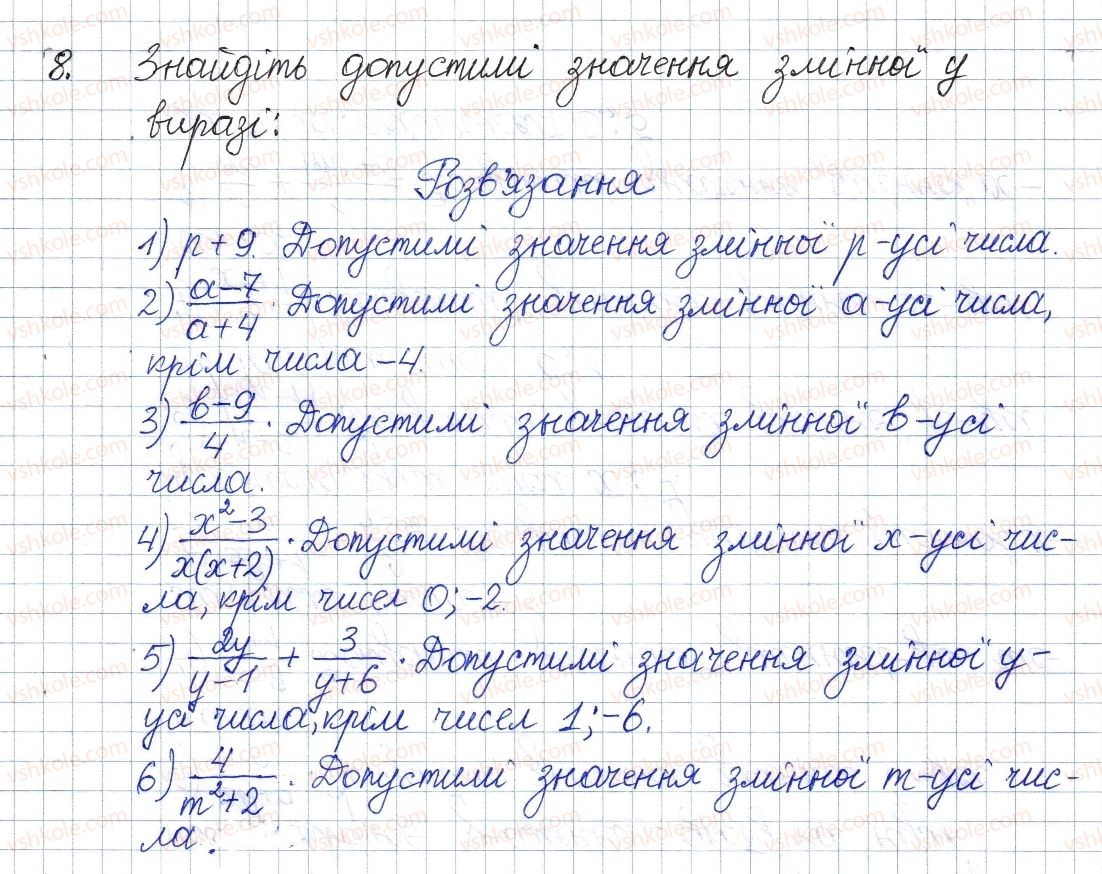 8. Знайдіть допустимі значення змінної у
виразі:
Розв'язання
1) p + 9. Допустимі значення змінної p - усі числа.
2) (a-7)/(a+4). Допустимі значення змінної a - усі числа,
крім числа -4.
3) (b-9)/4. Допустимі значення змінної b - усі
числа.
4) (x²-3)/(x(x+2)). Допустимі значення змінної x - усі чис-
ла, крім чисел 0; -2.
5) 2y/(y-1) + 3/(y+6). Допустимі значення змінної y -
усі числа, крім чисел 1; -6.
6) 4/(m²+2). Допустимі значення змінної m - усі чис-
ла.